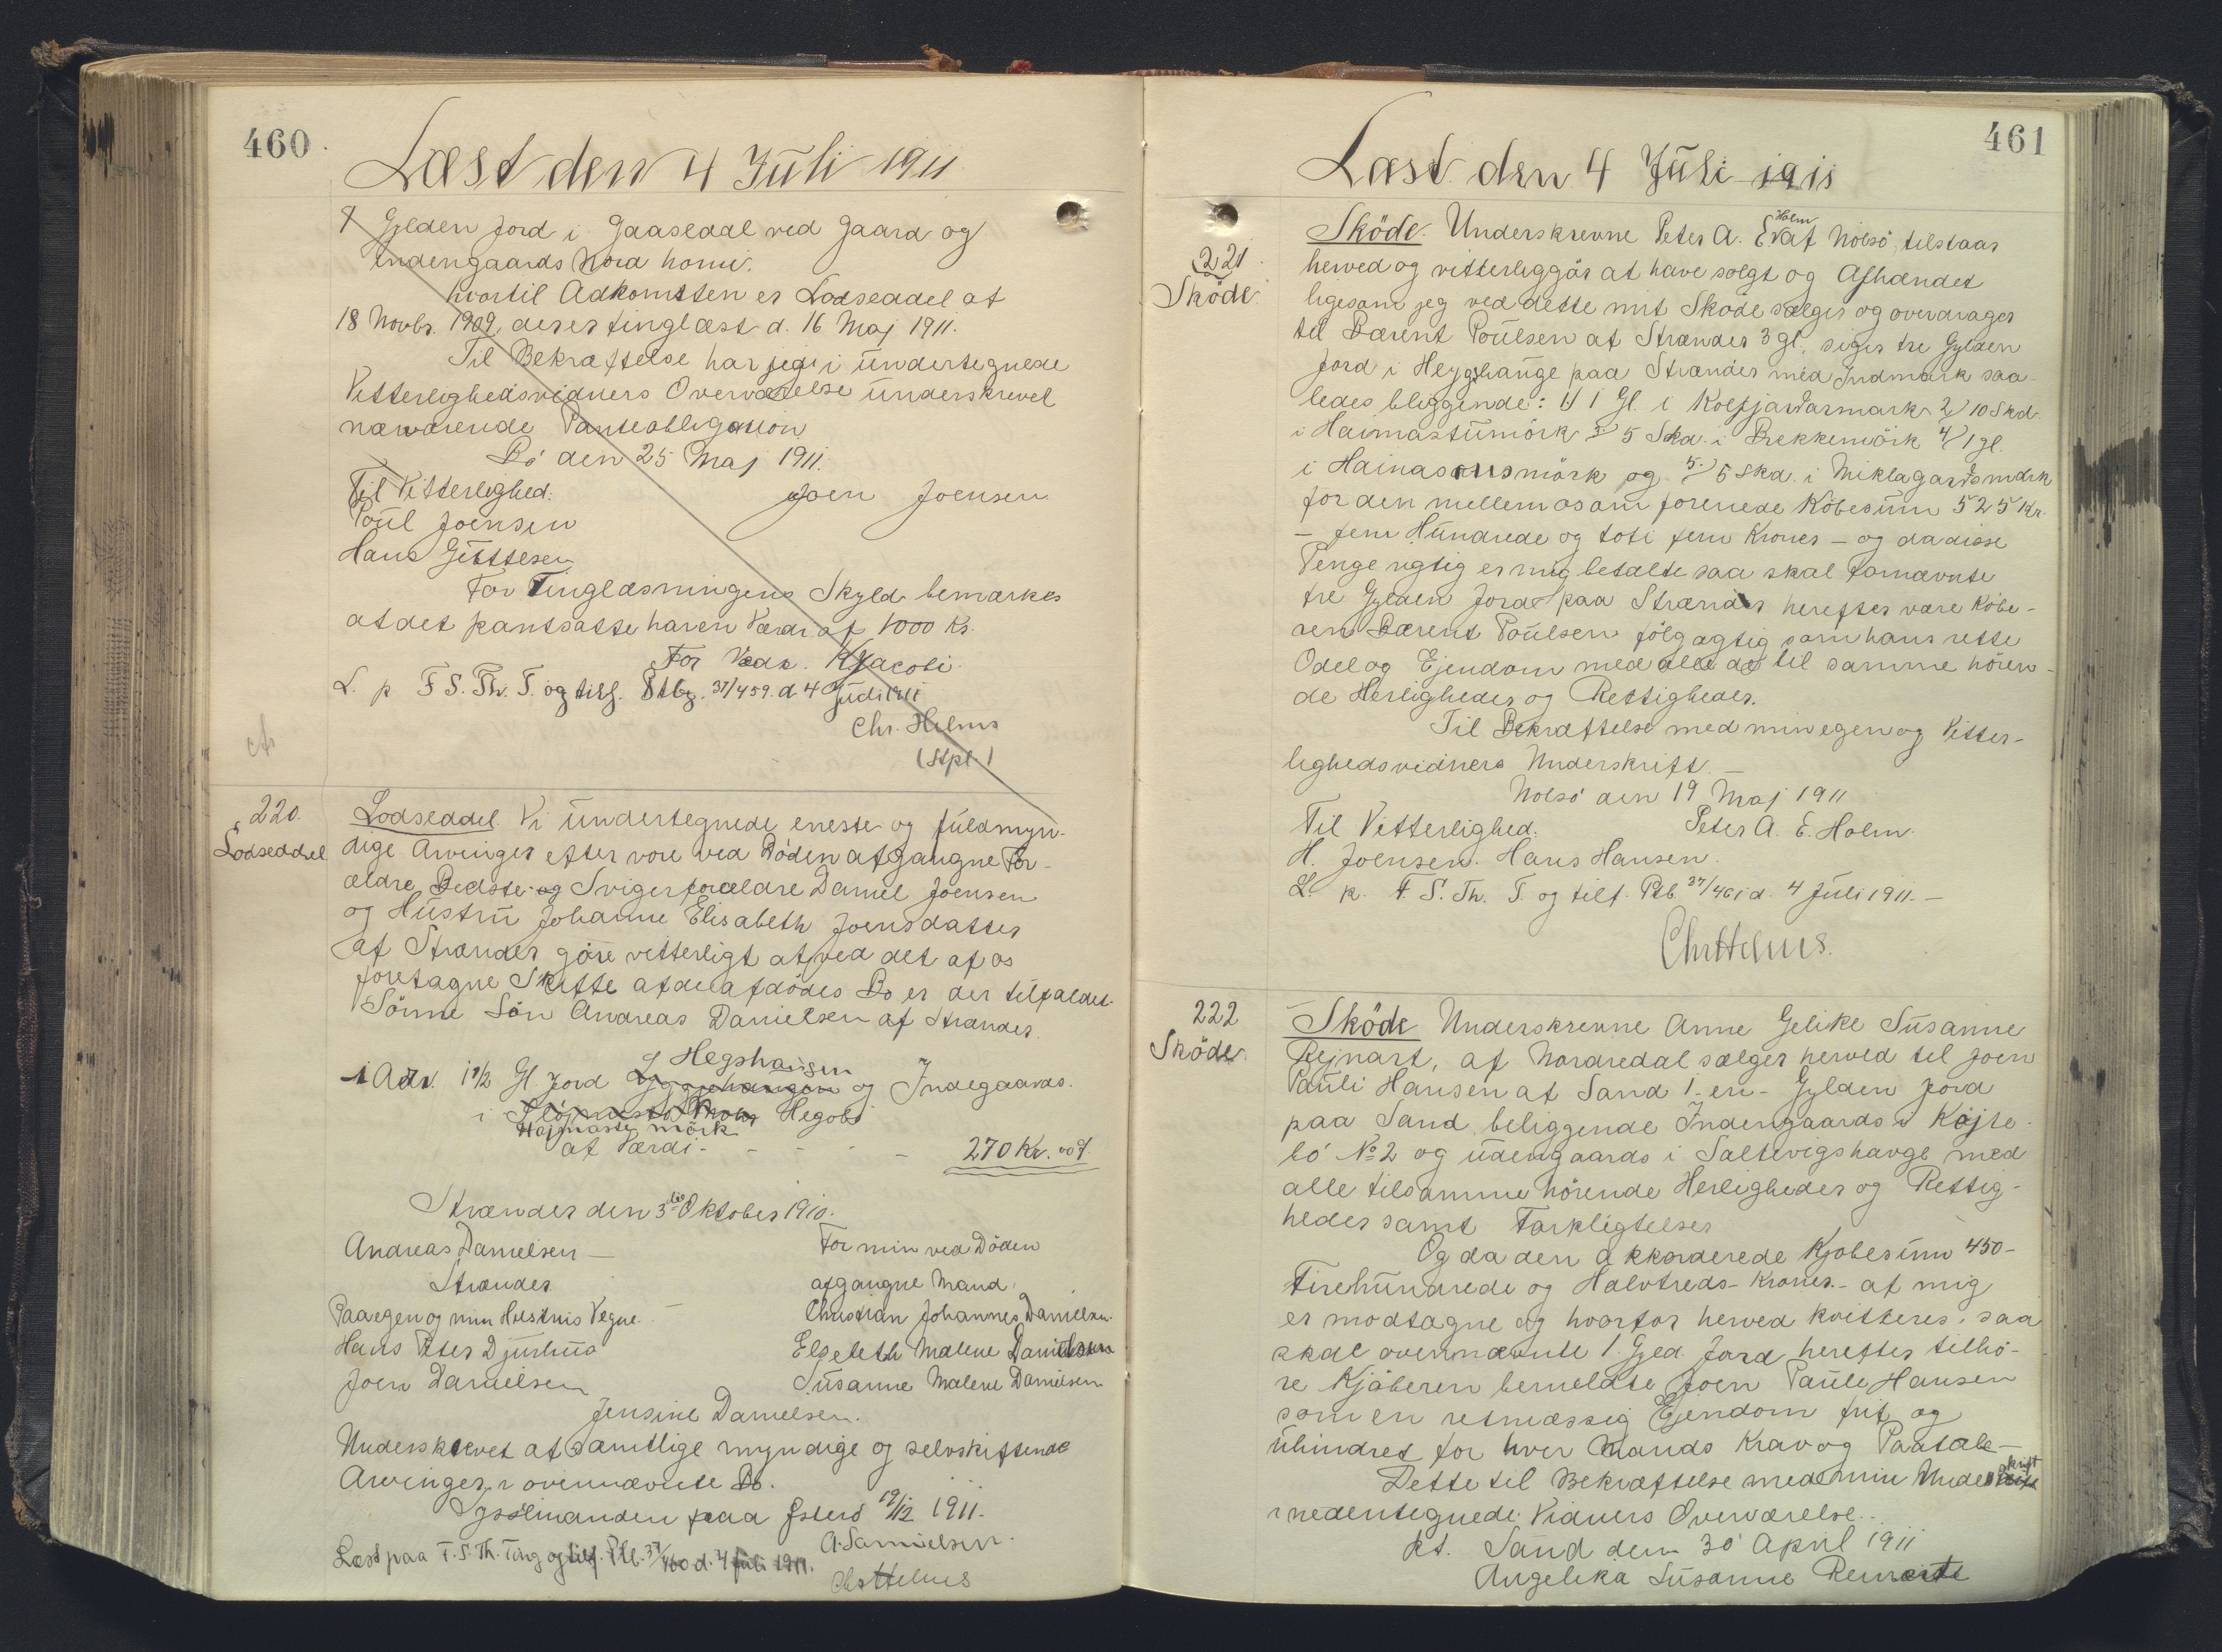 460
Læst den 4 Juli 1911
8 Gylden Jord i Gaasedal ved Gaard og
Indengaards Nord homi.
hvortil Adkomsten er Lodseddel af
18 Novbr. 1909, der er tinglæst d. 16 Maj 1911.
Til Bekræftelse har jeg i undertegnede
Vitterlighedsvidners Overværelse underskrevet
nærværende Panteobligation
Bö den 25 Maj 1911.
Til Vitterlighed: Joen Joensen
Poul Joensen
Hans Guttesen
For Tinglæsningens Skyld bemærkes
at det pantsatte har en Værdi af 1000 Kr.
For Vedk. R Jacobi
L. p F S. Th. T. og tilf. Ptbg. 37/459. d. 4 Juli 1911
Chr. Helms
(Stpl.)
220.
Lodseddel
Lodseddel Vi undertegnede eneste og fuldmyn-
dige Arvinger efter vore ved Döden afgangne For-
ældre Bedste- og Svigerforældre Daniel Joensen
og Hustru Johanne Elisabeth Joensdatter
af Strænder göre vitterligt at ved det af os
foretagne Skifte af de afdödes Bo er der tilfaldet
Sönne Sön Andreas Danielsen af Strænder.
1 1/2 Gl. Jord Hegshaugen og Indegaards.
i Hegobö
Hojmaste mörk
af Værdi - - - - - 270 Kr.
Strænder den 3die Oktober 1910.
Andreas Danielsen — For min ved Döden
Strænder afgangne Mand:
Paa egen og min Hustrus Vegne. Christian Johannes Danielsen.
Hans Peter Djurhuus Elsebeth Malene Danielsen
Joen Danielsen Susanne Malene Danielsen
Jensine Danielsen.
Underskrevet af samtlige myndige og selvskiftende
Arvinger i ovennævnte Bo.
Sysselmanden paa Österö 19/12 1911.
A. Samuelsen.
Læst paa F. S. Th. Ting og tilf. Ptb. 37/460 d. 4 Juli 1911.
Chr Helms
461
Læst den 4 Juli 1911
221.
Sköde.
Sköde. Underskrevne Peter A. E Holm af Nolsö, tilstaar
herved og vitterliggör at have solgt og Afhændet
ligesom jeg ved dette mit Sköde sælger og overdrager
til Bærent Poulsen af Strænder 3 gl. siger tre Gylden
Jord i Heygshauge paa Strænder med Indmark saa-
ledes bliggende: 1/ 1 Gl. i Kolfjarðarmark 2/ 10 Skd.
i Haimastumörk 3/ 5 Skd. i Brekkemörk 4/ 1 gl.
i Hainasonsmörk og 5/ 5 Skd. i Miklagardsmörk
for den mellem os om forenede Köbesum 525 Kr.
— fem Hundrede og toti fem Kroner — og da disse
Penge rigtig er mig betalte saa skal fornævnte
tre Gylden Jord paa Strænder herefter være Köbe-
ren Bærent Poulsen fölgagtig som hans rette
Odel og Ejendom med alle de til samme hören-
de Herligheder og Rettigheder.
Til Bekræftelse med min egen og Vitter-
lighedsvidners Underskrift. —
Nolsö den 19 Maj 1911
Til Vitterlighed: Peter A. E. Holm.
H. Joensen. Hans Hansen.
L. p. F. S. Th. T. og tilf. Ptb. 37/461 d. 4 Juli 1911. —
Chr Helms.
222
Sköde.
Sköde Underskrevne Anne Gelike Susanne
Rejnart, af Nordredal sælger herved til Joen
Pauli Hansen af Sand 1 - en - Gylden Jord
paa Sand beliggende Indengaards i Køjte-
bö No 2 og udengaards i Saltevigshauge med
alle tilsamme hörende Herligheder og Rettig-
heder samt Forpligtelser
Og da den akkorderede Kjöbesum 450 -
Firehundrede og Halvtreds - Kroner - af mig
er modtagne og hvorfor herved kvitteres, saa
skal ovennævnte 1. Gyld. Jord herefter tilhö-
re Kjöberen bemeldte Joen Pauli Hansen
som en retmæssig Ejendom frit og
uhindret for hver Mands Krav og Paatale —
Dette til Bekræftelse med min Underskrift
i nedentegnede Vidners Overværelse..
pt. Sand den 30 April 1911
Angelika Susanne Reinert